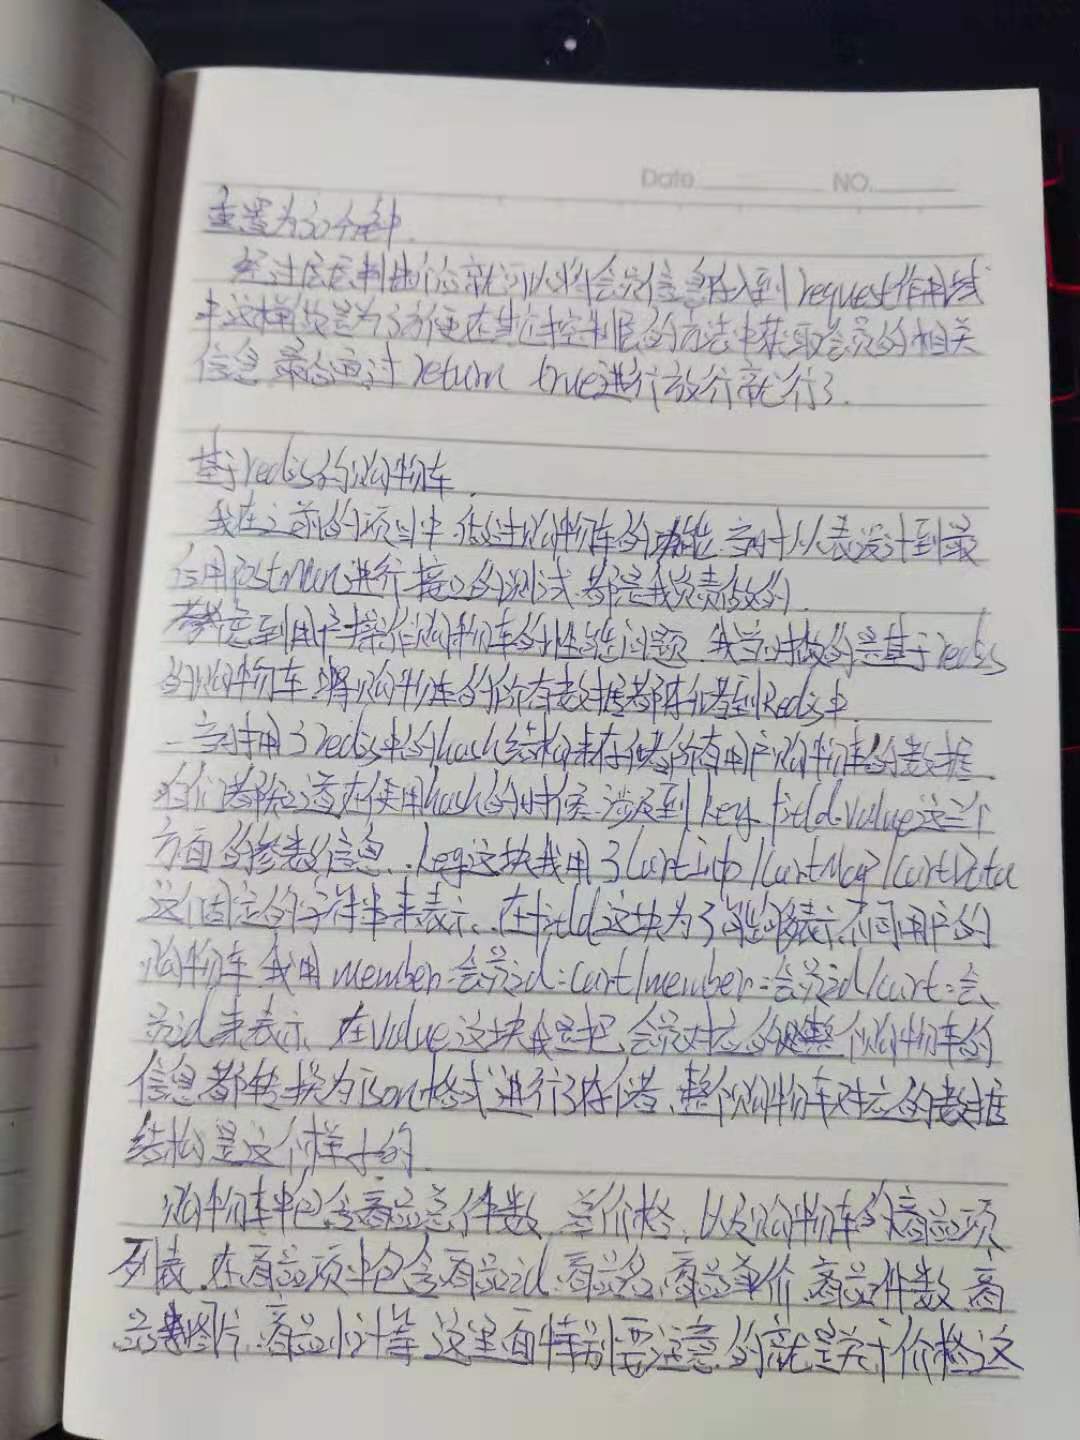 Date NO.
重置为30分钟.
经过层层判断后就可以将会员信息存入到request作用域
中这样做是为了方便在后过控制层的方法中获取会员的相关
信息 最后通过return true进行放行就行了.
基于redis的购物车.
我在之前的项目中.做过购物车的功能.当时从表设计到最
后用Postman进行接口的测试.都是我负责做的.
考虑到用户操作购物车的性能问题.我当时做的是基于redis
的购物车.将购物车的所有数据都存储到Redis中.
当时用了redis中的hash结构来存储所有用户购物车的数据.
咱们都知道在使用hash的时候.涉及到key.field.value这三个
方面的参数信息.key这块我用了CartInfo/CartMap/CartData
这个固定的字符串来表示.在field这块为了能够表示不同用户的
购物车 我用member:会员id:cart/member:会员id/cart:会
员id来表示.在value这块我是把会员对应的整个购物车的
信息都转换为Json格式进行了存储.整个购物车对应的数据
结构是这个样子的.
购物车中包含商品总件数.总价格.以及购物车的商品项
列表.在商品项中包含商品id.商品名.商品单价.商品件数.商
品图片.商品小计等.这里面特别要注意的就是关于价格这